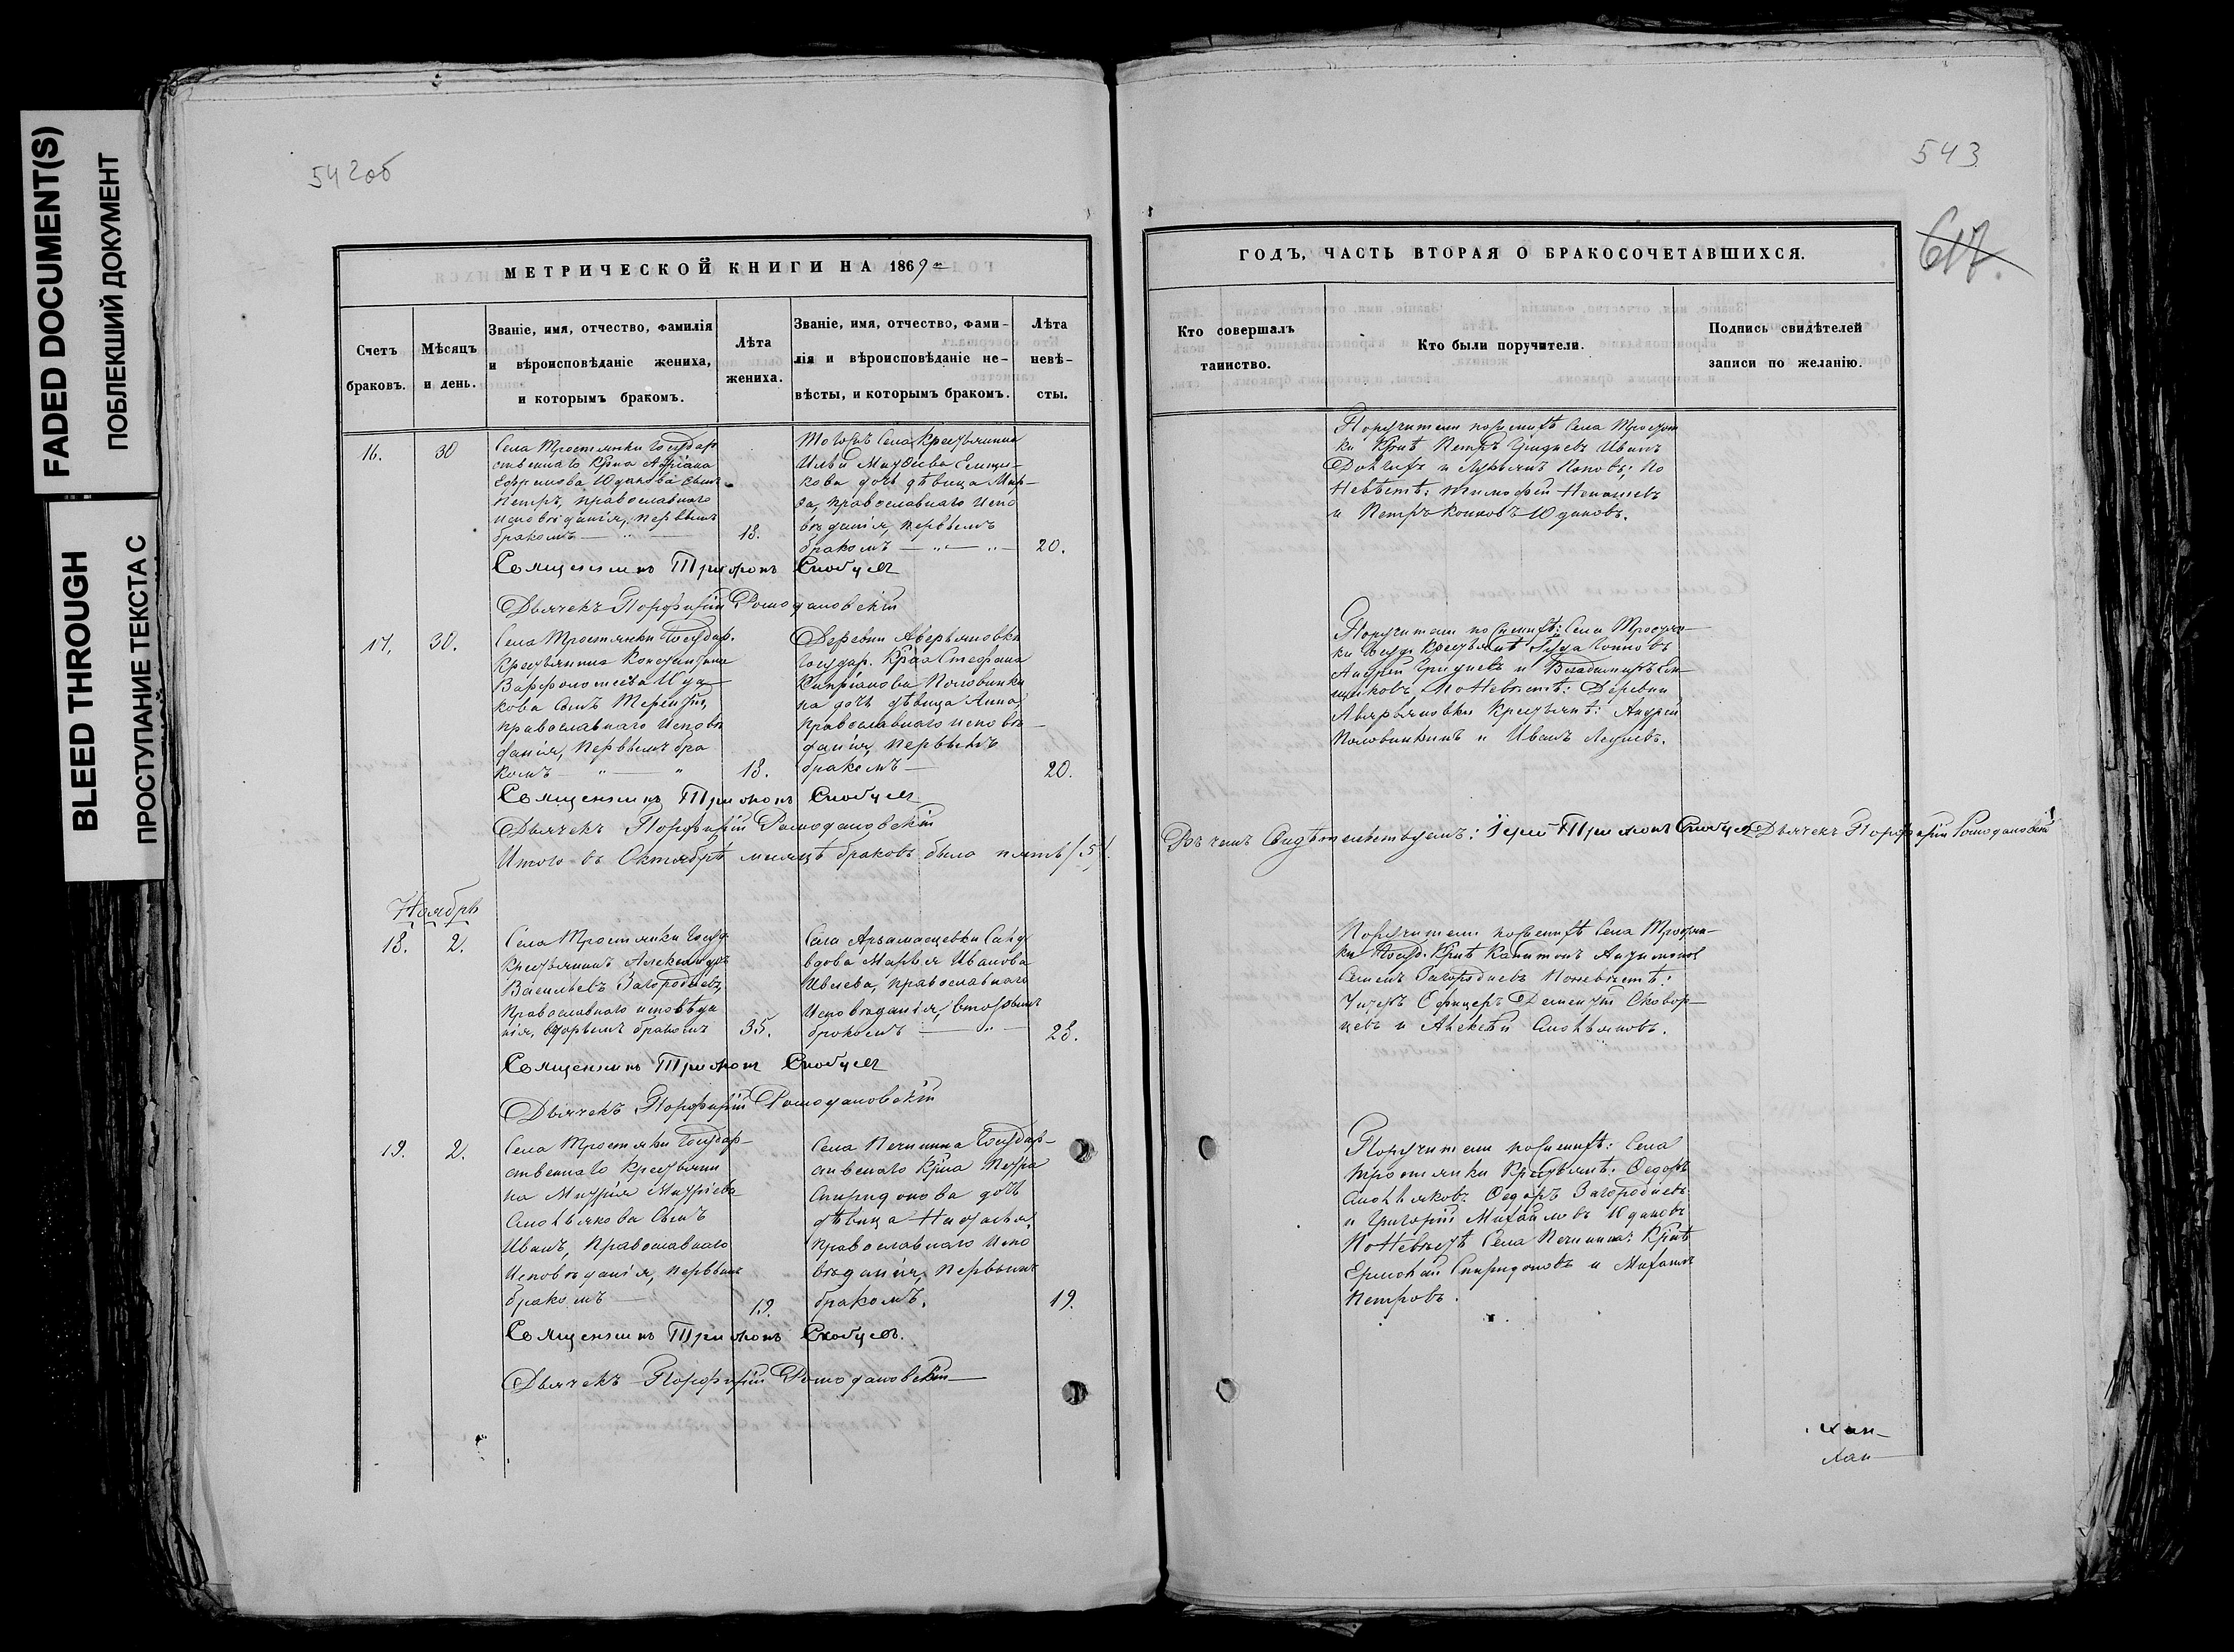 FADED DOCUMENT(S)
ПОБЛЕКШИЙ ДОКУМЕНТ
BLEED THROUGH
ПРОСТУПАНИЕ ТЕКСТА С
542об
МЕТРИЧЕСКОЙ КНИГИ НА 1869
Счетъ браковъ.
Мѣсяцъ и день.
Званіе, имя, отчество, фамилія
и вѣроисповѣданіе жениха,
и которымъ бракомъ.
Лѣта
жениха.
Званіе, имя, отчество, фами-
лія и вѣроисповѣданіе не-
вѣсты, и которымъ бракомъ.
Лѣта
невѣ-
сты.
16.
30
Села Тростянки Государ
ственнаго Кр-на Адріана
Ефремова Юдакова сынъ
Петръ, православнаго
исповѣданія, первымъ
бракомъ
18.
Тогожъ Села Крестьянина
Ильи
кова дочь дѣвица Мар-
ѳа, православнаго испо
вѣданія, первымъ
бракомъ
20.
Священникъ Трифонъ Скобцевъ
Дьячекъ Порфирій Ромодановскій
17.
30.
Села Тростянки Государ.
Крестьянина Константина
Варфоломеева Юда
кова сынъ Терентій,
православнаго исповѣ
данія, первымъ бра
комъ
18.
Деревни Аверьяновки
Государ. Кр-на Стефана
Кипріанова Половинки
на дочь дѣвица Анна,
православнаго исповѣ
данія, первымъ
бракомъ
20.
Священникъ Трифонъ Скобцевъ
Дьячекъ Порфирій Ромодановскій
Итого въ Октябрѣ месяцѣ браковъ было пять /5/.
Ноябрь
18.
2.
Села Тростянки Госуд.
Крестьянинъ Александръ
Васильевъ Загородневъ,
православнаго исповѣда
нія, вторымъ бракомъ
35.
Села Арзамасцевки Солд.
вдова Марья Иванова
православнаго
исповѣданія, вторымъ
бракомъ
28.
Священникъ Трифонъ Скобцевъ
Дьячекъ Порфирій Ромодановскій
19.
2.
Села Тростянки Государ-
ственнаго Крестьяни
на Дмитрія Дмитріева
Смольякова сынъ
Иванъ, православнаго
исповѣданія, первымъ
бракомъ
19.
Села Печинина Государ-
ственнаго Кр-на Петра
Спиридонова дочь
дѣвица Наталья,
православнаго испо
вѣданія, первымъ
бракомъ.
19.
Священникъ Трифонъ Скобцевъ.
Дьячекъ Порфирій Ромодановскій
543
617.
ГОДЪ, ЧАСТЬ ВТОРАЯ О БРАКОСОЧЕТАВШИХСЯ.
Кто совершалъ
таинство.
Кто были поручители.
Подпись свидѣтелей
записи по желанію.
Поручители по женихѣ Села Тростян
ки Кр-не Петръ Гридневъ Иванъ
и Лукьянъ Поповъ; по
Невѣстѣ: Тимофей
и Петръ Юдаковъ.
Поручители по женихѣ: Села Тростян-
ки Госуд. Крестьяне
Андрей Гридневъ и Владимиръ
по Невѣстѣ: Деревни
Аверьяновки Крестьяне: Андрей
Половинкинъ и Иванъ
Въ чемъ Свидѣтельствуемъ: Іерей Трифонъ Скобцевъ Дьячекъ Порфирій Ромодановскій
Поручители по женихѣ Села Тростян-
ки Госуд. Кр-не Капитонъ
Семенъ Загородневъ по невѣстѣ:
Унтеръ Офицеръ Дементій Сковор-
цевъ и Алексѣй Смольяковъ.
Поручители по женихѣ: Села
Тростянки Крестьяне: Ѳедоръ
Смольяковъ Ѳедоръ Загородневъ
и Григорій Михайловъ Юдаковъ
по Невѣстѣ Села Печинина: Кр-не
Ермолай Спиридоновъ и Михаилъ
Петровъ.